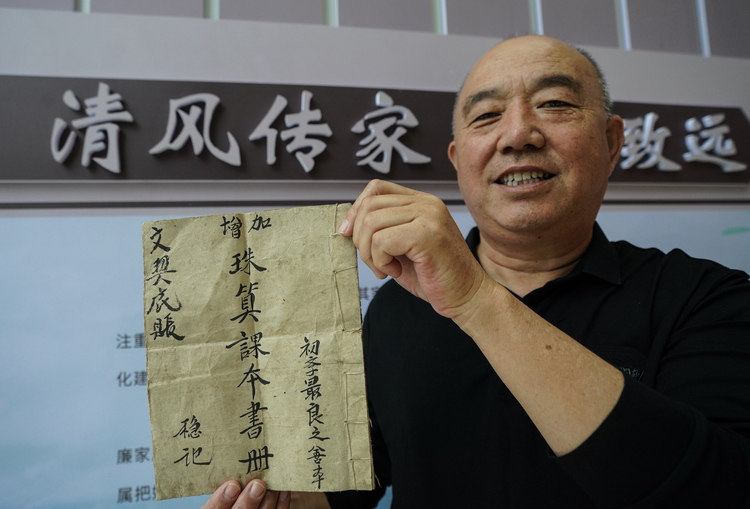 清风传家 致远
初学最良之善本
增加
珠算課本書册
文契底賬
穩記
注重
化建
廉家
属把